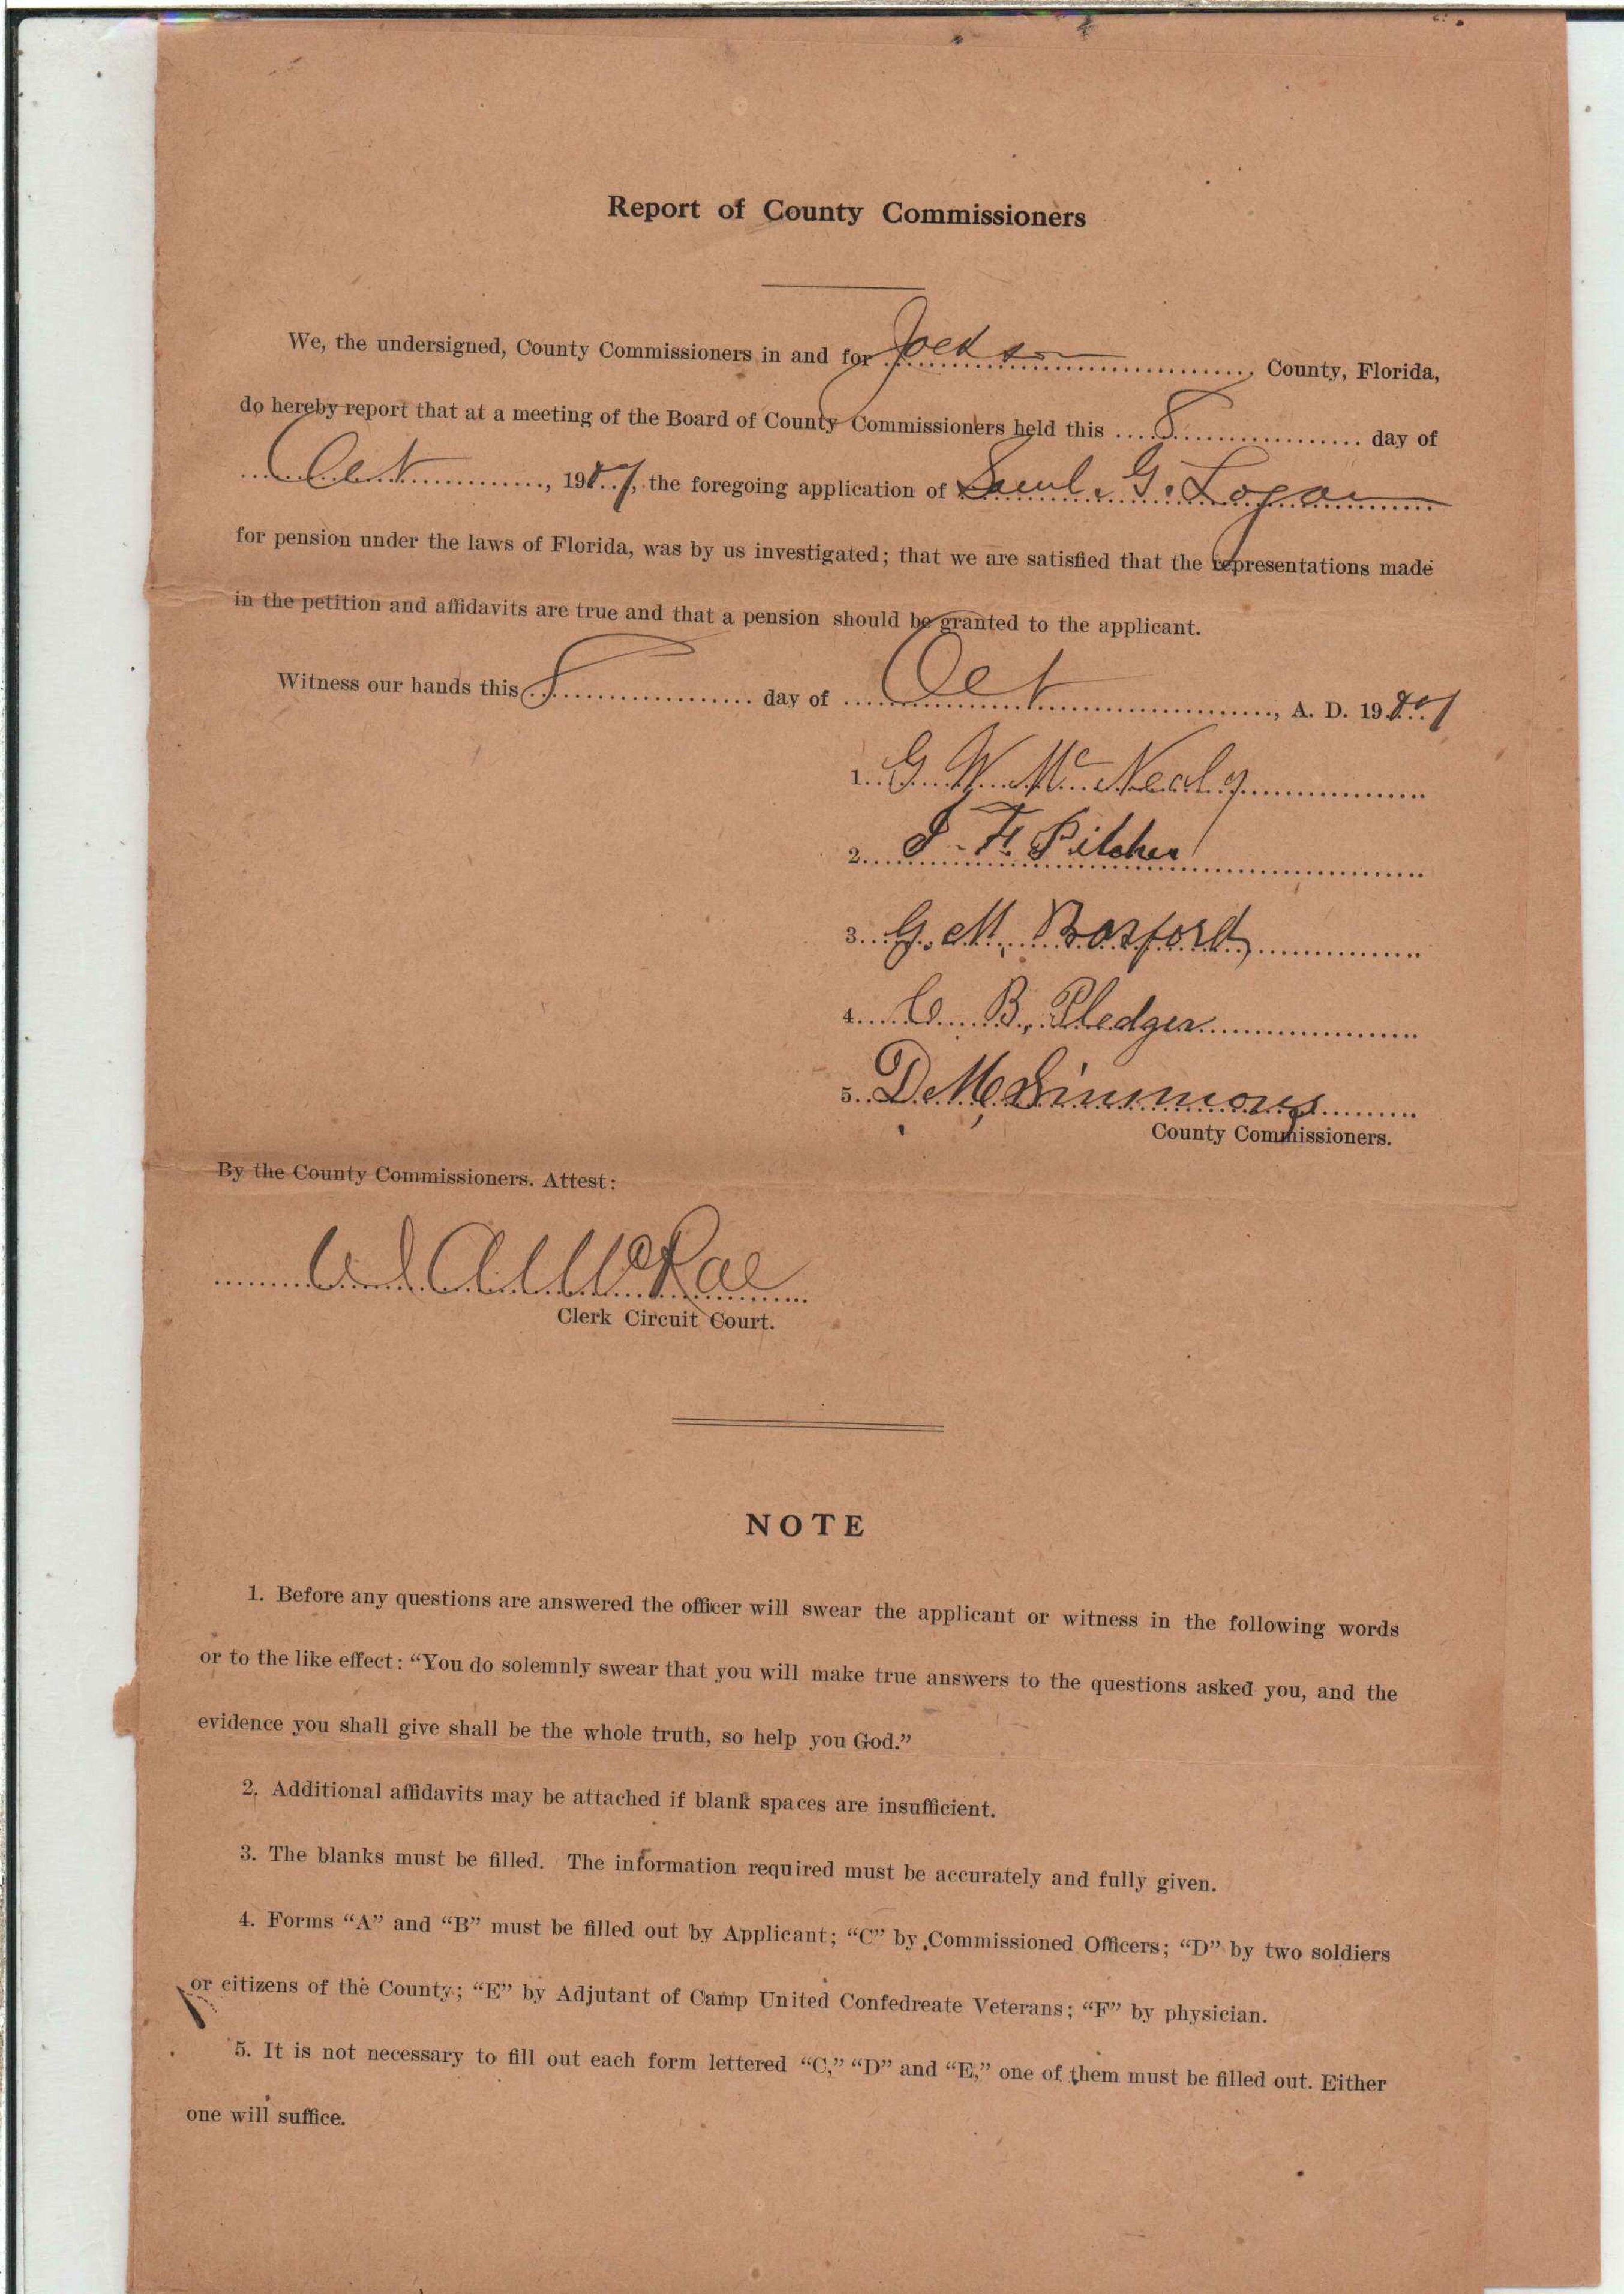 Report of County Commissioners
We, the undersigned, County Commissioners in and for Jackson County, Florida,
do hereby report that at a meeting of the Board of County Commissioners held this 8 day of
Oct, 1907, the foregoing application of Saml. G. Logan
for pension under the laws of Florida, was by us investigated; that we are satisfied that the representations made
in the petition and affidavits are true and that a pension should be granted to the applicant.
Witness our hands this 8 day of Oct, A. D. 1907
1. G. W. McNealy
2. J. H. Pilcher
3. G. M. Basford
4. C. B. Pledger
5. D M Simmons
County Commissioners.
By the County Commissioners. Attest:
McRae
Clerk Circuit Court.
NOTE
1. Before any questions are answered the officer will swear the applicant or witness in the following words
or to the like effect: “You do solemnly swear that you will make true answers to the questions asked you, and the
evidence you shall give shall be the whole truth, so help you God.”
2. Additional affidavits may be attached if blank spaces are insufficient.
3. The blanks must be filled. The information required must be accurately and fully given.
4. Forms “A” and “B” must be filled out by Applicant; “C” by Commissioned Officers; “D” by two soldiers
or citizens of the County; “E” by Adjutant of Camp United Confedreate Veterans; “F” by physician.
5. It is not necessary to fill out each form lettered “C,” “D” and “E,” one of them must be filled out. Either
one will suffice.